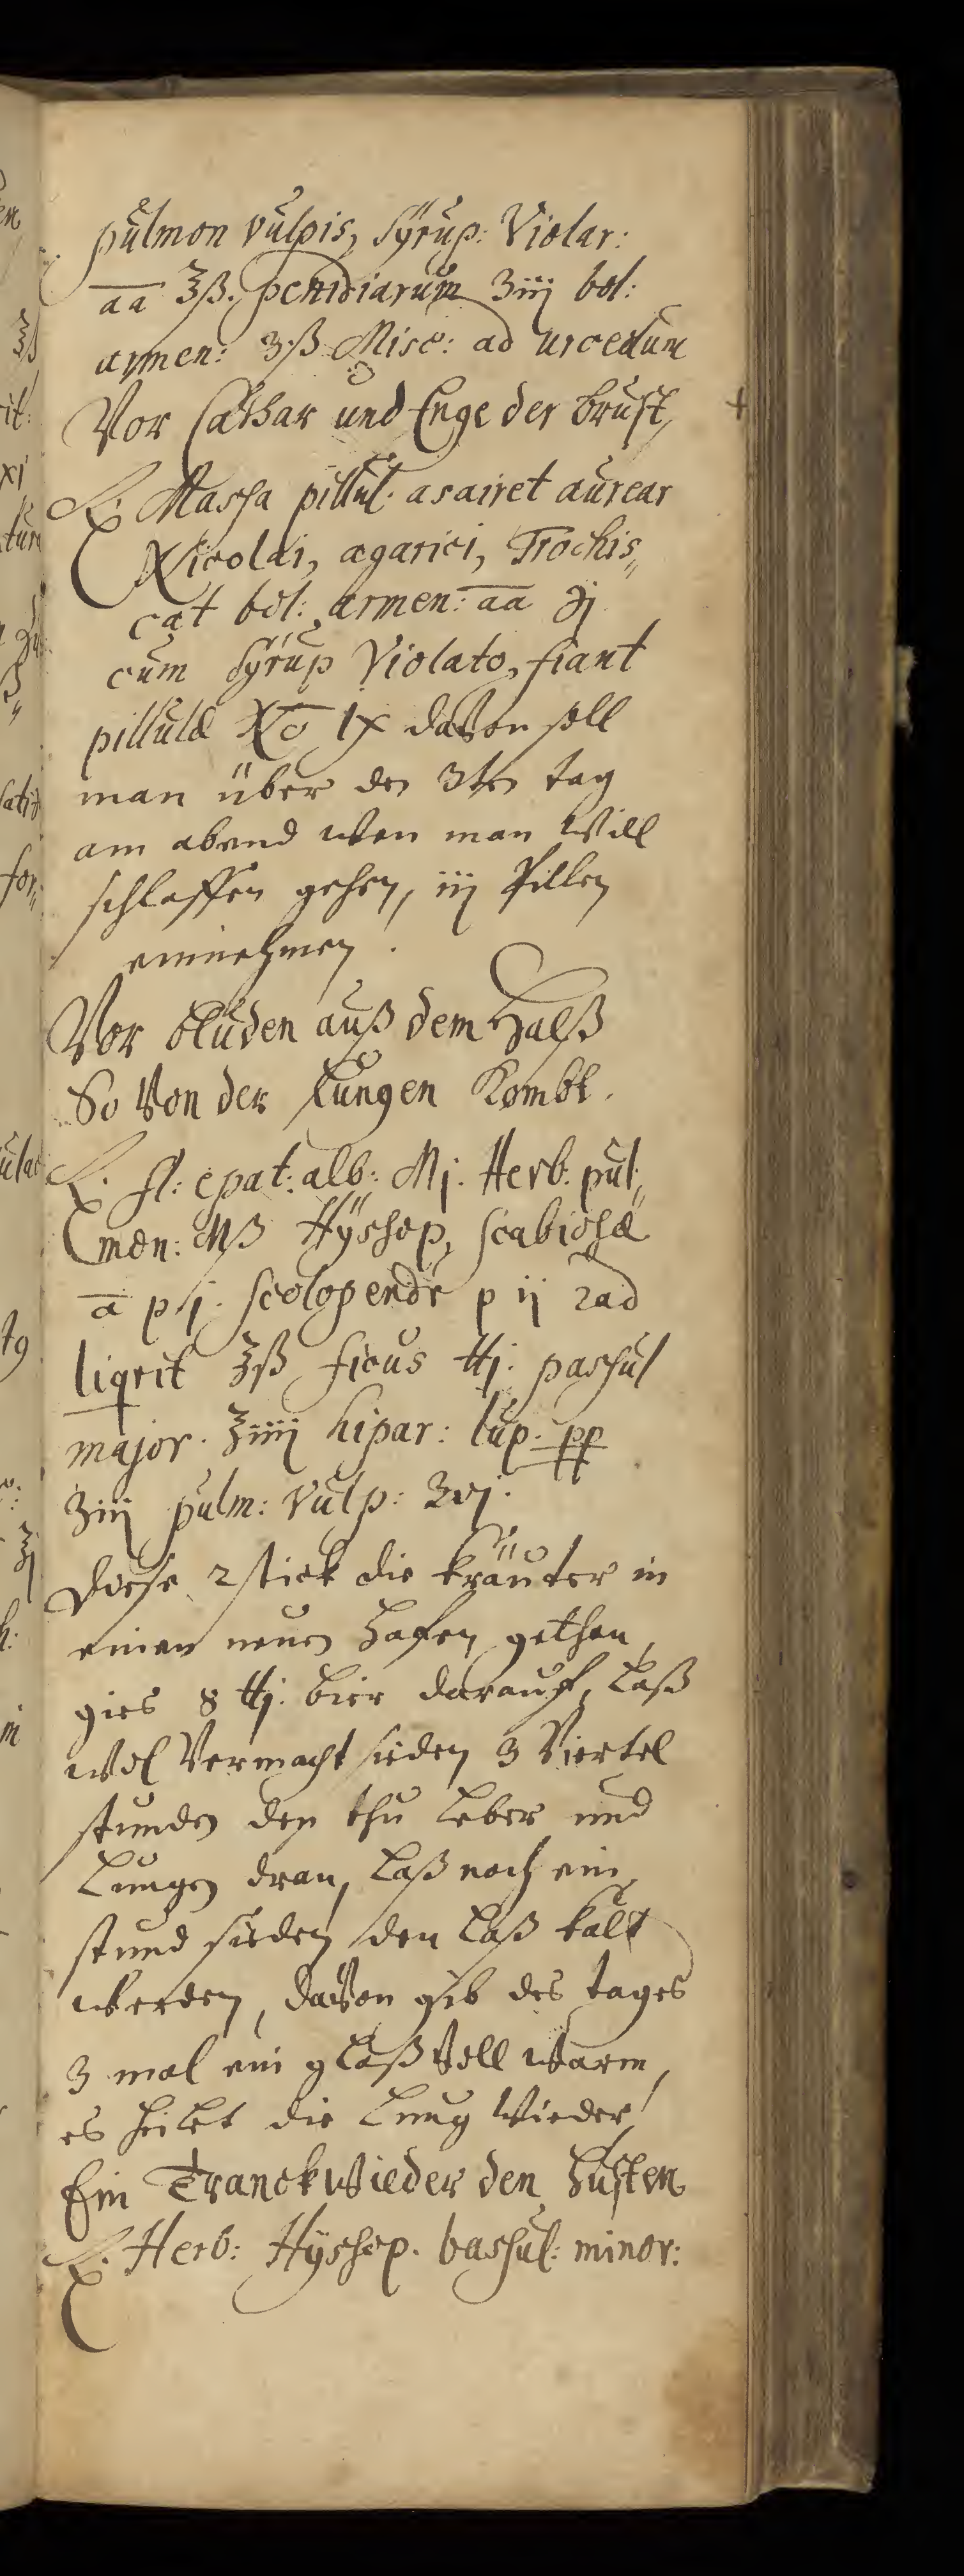 pulmon vulpis, Syrup: Violar:
aa ℥ß. penidiarum ʒiij bol:
armen: ʒ.ß Misc: ad urceolum
Vor Cathar und Enge der brust,
℞. Massa pillul. asairet aurear
Nicolai, agarici, Trochis„
cat bol: armen: aa ℈j
cum Syrup Violato, fiant
pillulæ No IX davon soll
man über den 3ten tag
am abend wen man will
schlaffen gehen, iij Pillen
einnehmen.
Vor bluden auß dem Halß
So von der Lungen Kombt.
℞. fl: epat: alb: Mj. Herb: pul„
mon: Mß Hÿssop, scabiosæ
a pj. scolopendr p ij rad
liqrit ℥ß ficus ℔j. passul
major. ℥iiij hipar: lup. pp
ʒiij pulm: vulp: ʒvj.
Diese 2 stick die kräuter in
einen neuen Hafen gethan,
gies 8 ℔j. bier darauf, laß
wol vermacht sieden 3 Viertel
stunden den thu leber und
Lungen dran, laß noch ein
stund sieden den laß kalt
werden, davon gib des tages
3 mal ein glaß voll warm,
es heilet die Lung wieder
Ein Tranck wieder den Husten
℞. Herb: Hÿssop. bassul: minor: